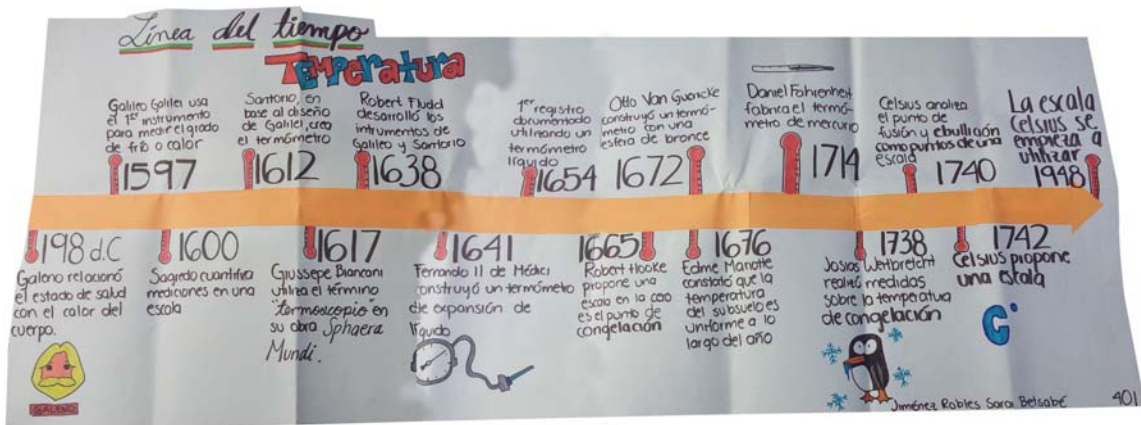 Línea del tiempo
Temperatura
Galileo Galilei usa
el 1er instrumento
para medir el grado
de frío o calor
1597
Santorio, en
base al diseño
de Galilei, creo
el termómetro
1612
Robert Fludd
desarrolló los
intrumentos de
Galileo y Santorio
1638
1er registro
documentado
utilizando un
termómetro
líquido
1654
Otto Van Guericke
construyó un termó-
metro con una
esfera de bronce
1672
Daniel Fahrenheit
fabrica el termó-
metro de mercurio
1714
Celsius analiza
el punto de
fusión y ebullición
como puntos de una
escala
1740
La escala
Celsius se
empieza a
utilizar
1948
198 d.C
Galeno relacionó
el estado de salud
con el calor del
cuerpo.
GALENO
1600
Sagredo cuantifica
mediciones en una
escala
1617
Giussepe Bianconi
utiliza el término
"termoscopio" en
su obra Sphaera
Mundi.
1641
Fernando II de Médici
construyó un termómetro
de expansión de
líquido
1665
Robert Hooke
propone una
escala en la
es el punto de
congelación
1676
Edme Mariotte
constató que la
temperatura
del subsuelo es
uniforme a lo
largo del año
1738
Josias Weitbrecht
realizó medidas
sobre la temperatura
de congelación
1742
Celsius propone
una escala
C°
Jiménez Robles Sarai Betsabé
401